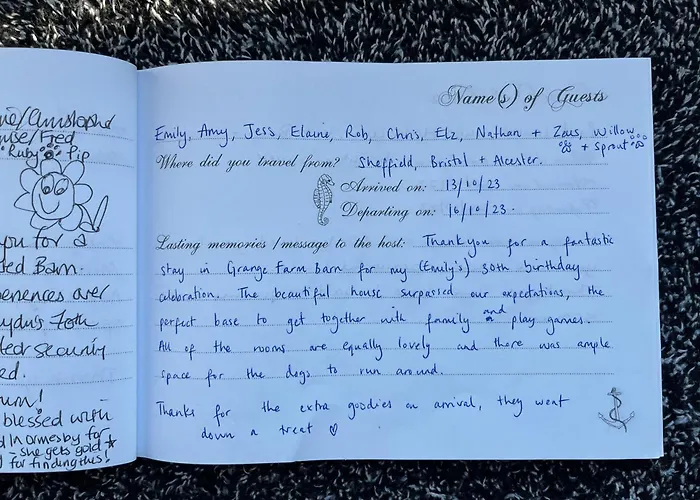 Ruby Pip
for a
Barn.
over
security
blessed with
In Ormesby for
- she gets gold
for finding this!
Name(s) of Guests
Emily, Amy, Jess, Elaine, Rob, Chris, Elz, Nathan + Zeus, Willow
+ Sprout
Where did you travel from? Sheffield, Bristol + Alcester.
Arrived on: 13/10/23
Departing on: 16/10/23.
Lasting memories / message to the host: Thank you for a fantastic
stay in Grange Farm Barn for my (Emily's) 30th birthday
celebration. The beautiful house surpassed our expectations, the
perfect base to get together with family and play games.
All of the rooms are equally lovely and there was ample
space for the dogs to run around.
Thanks for the extra goodies on arrival, they went
down a treat ♡